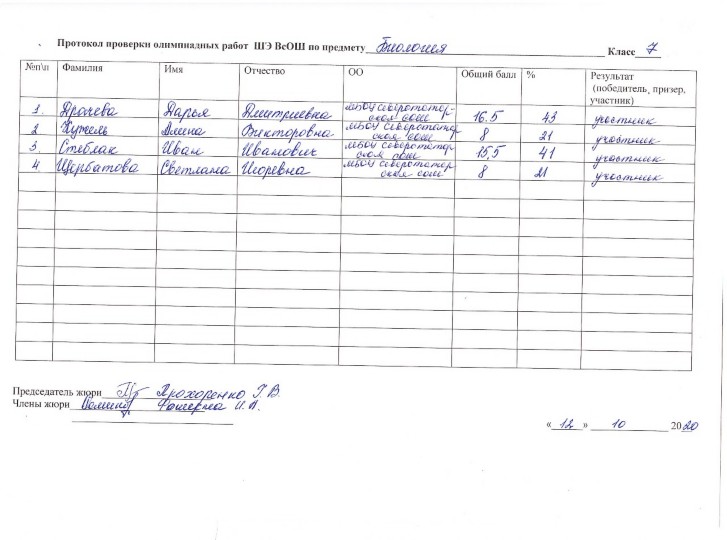 Протокол проверки олимпиадных работ ШЭ ВсОШ по предмету Биология Класс 7
№п\п Фамилия Имя Отчество ОО Общий балл % Результат (победитель, призер, участник)
1. Драчева Дарья Дмитриевна МБОУ Северотатарская сош 16.5 43 участник
2 Кужель Алина Викторовна МБОУ Северотатарская сош 8 21 участник
3. Стеблак Иван Иванович МБОУ Северотатарская сош 15,5 41 участник
4. Щербатова Светлана Игоревна МБОУ Северотатарская сош 8 21 участник
Председатель жюри Прохоренко Г.В.
Члены жюри И.А.
« 12 » 10 2020